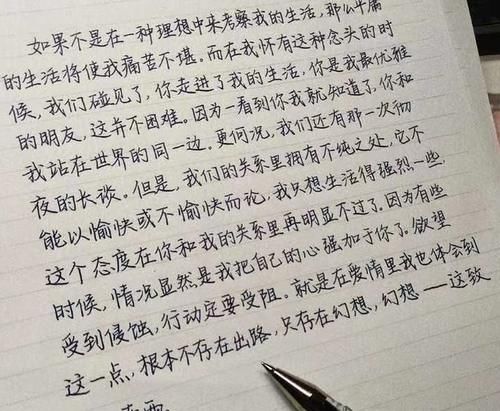 如果不是在一种理想中来考察我的生活，那么平庸
的生活将使我痛苦不堪。而在我怀有这种念头的时
候，我们碰见了，你走进了我的生活，你是我最优雅
的朋友，这并不困难。因为一看到你我就知道了，你和
我站在世界的同一边，更何况，我们还有那一次彻
夜的长谈。但是，我们的关系里拥有不纯之处，它不
能以愉快或不愉快而论，我只想生活得强烈一些，
这个态度在你和我的关系里再明显不过了。因为有些
时候，情况显然是我把自己的心强加于你了。欲望
受到侵蚀，行动定要受阻。就是在爱情里我也体会到
这一点，根本不存在出路，只存在幻想，幻想——这致